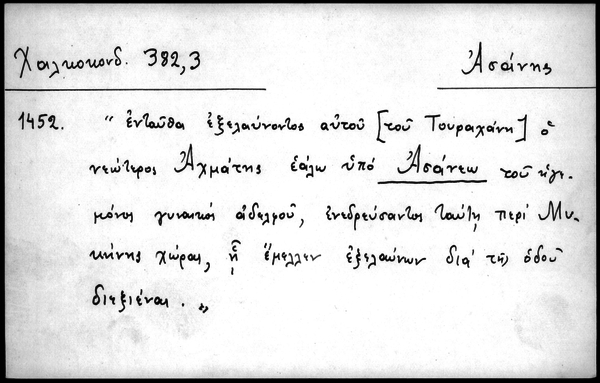 Χαλκοκονδ. 382,3
Ἀσάνης
1452. " ἐνταῦθα ἐξελαύνοντος αὐτοῦ [τοῦ Τουραχάνη] ὁ
νεώτερος Ἀχμάτης ἑάλω ὑπό Ἀσάνεω τοῦ ἡγε-
μόνος γυναικός ἀδελφοῦ, ἐνεδρεύσαντος ταύτῃ περί Μυ-
κήνης χώραν, ᾗ ἔμελλεν ἐξελαύνων διά τῆς ὁδοῦ
διεξιέναι. "